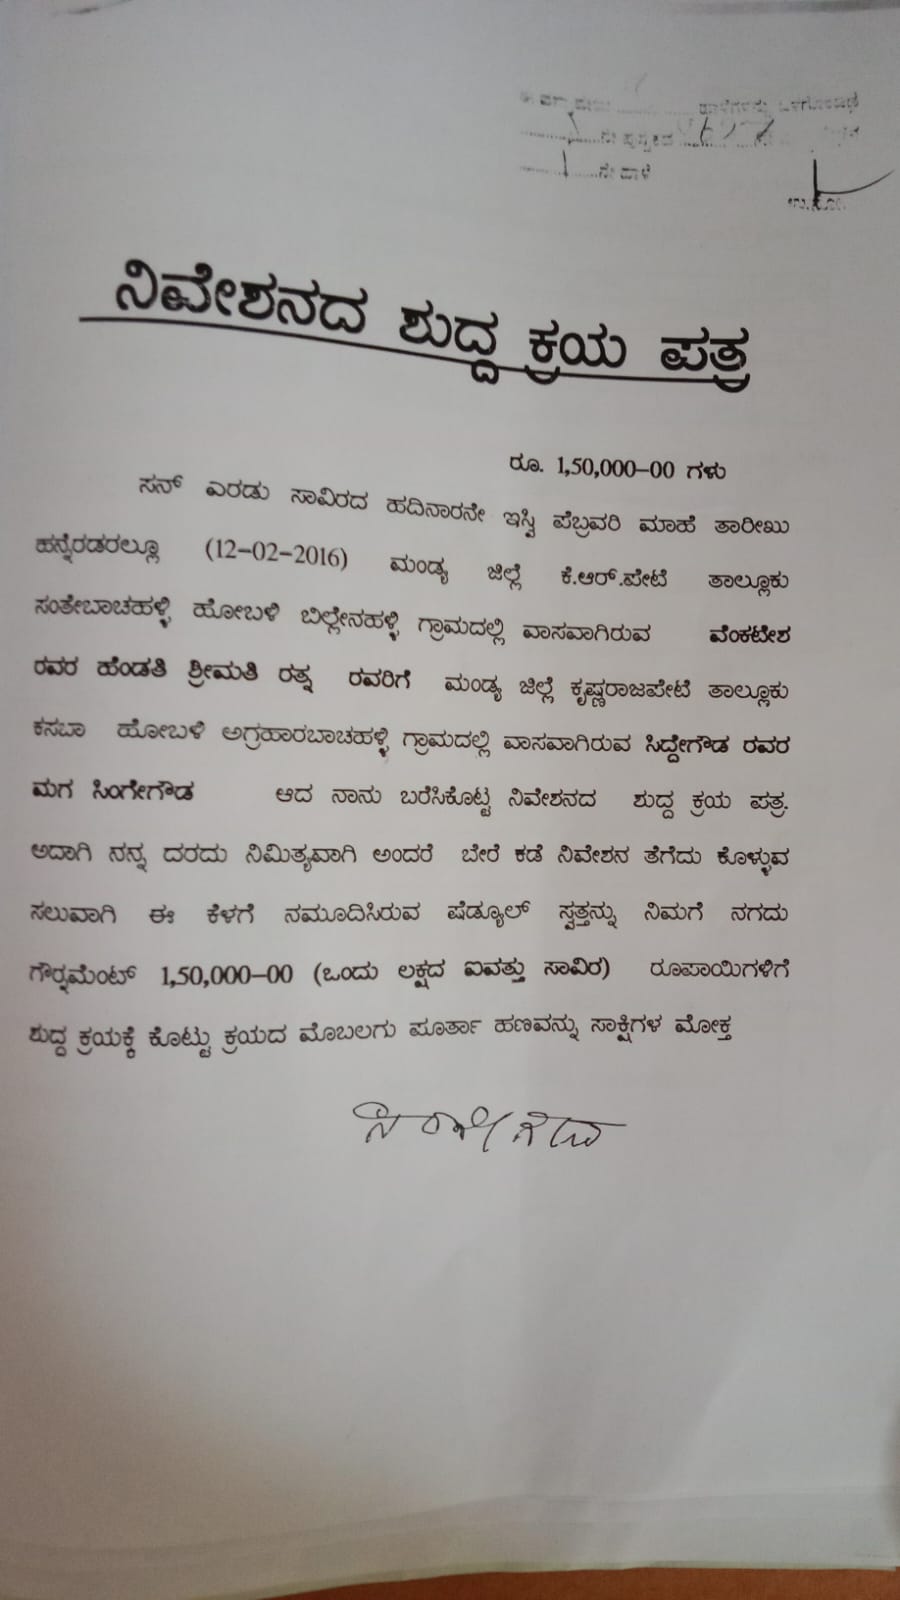 ಹಾಳೆಗಳನ್ನು ಒಳಗೊಂಡಿದೆ
ನೇ ಪುಸ್ತಕದ
ನೇ ಹಾಳೆ
ನಿವೇಶನದ ಶುದ್ದ ಕ್ರಯ ಪತ್ರ
ರೂ. 1,50,000-00 ಗಳು
ಸನ್ ಎರಡು ಸಾವಿರದ ಹದಿನಾರನೇ ಇಸ್ವಿ ಪೆಬ್ರವರಿ ಮಾಹೆ ತಾರೀಖು
ಹನ್ನೆರಡರಲ್ಲೂ (12-02-2016) ಮಂಡ್ಯ ಜಿಲ್ಲೆ ಕೆ.ಆರ್.ಪೇಟೆ ತಾಲ್ಲೂಕು
ಸಂತೇಬಾಚಹಳ್ಳಿ ಹೋಬಳಿ ಬಿಲ್ಲೇನಹಳ್ಳಿ ಗ್ರಾಮದಲ್ಲಿ ವಾಸವಾಗಿರುವ ವೆಂಕಟೇಶ
ರವರ ಹೆಂಡತಿ ಶ್ರೀಮತಿ ರತ್ನ ರವರಿಗೆ ಮಂಡ್ಯ ಜಿಲ್ಲೆ ಕೃಷ್ಣರಾಜಪೇಟೆ ತಾಲ್ಲೂಕು
ಕಸಬಾ ಹೋಬಳಿ ಅಗ್ರಹಾರಬಾಚಹಳ್ಳಿ ಗ್ರಾಮದಲ್ಲಿ ವಾಸವಾಗಿರುವ ಸಿದ್ದೇಗೌಡ ರವರ
ಮಗ ಸಿಂಗೇಗೌಡ ಆದ ನಾನು ಬರೆಸಿಕೊಟ್ಟ ನಿವೇಶನದ ಶುದ್ದ ಕ್ರಯ ಪತ್ರ.
ಅದಾಗಿ ನನ್ನ ದರದು ನಿಮಿತ್ಯವಾಗಿ ಅಂದರೆ ಬೇರೆ ಕಡೆ ನಿವೇಶನ ತೆಗೆದು ಕೊಳ್ಳುವ
ಸಲುವಾಗಿ ಈ ಕೆಳಗೆ ನಮೂದಿಸಿರುವ ಷೆಡ್ಯೂಲ್ ಸ್ವತ್ತನ್ನು ನಿಮಗೆ ನಗದು
ಗೌರ್‍ನಮೆಂಟ್ 1,50,000-00 (ಒಂದು ಲಕ್ಷದ ಐವತ್ತು ಸಾವಿರ) ರೂಪಾಯಿಗಳಿಗೆ
ಶುದ್ದ ಕ್ರಯಕ್ಕೆ ಕೊಟ್ಟು ಕ್ರಯದ ಮೊಬಲಗು ಪೂರ್ತಾ ಹಣವನ್ನು ಸಾಕ್ಷಿಗಳ ಮೋಕ್ತ